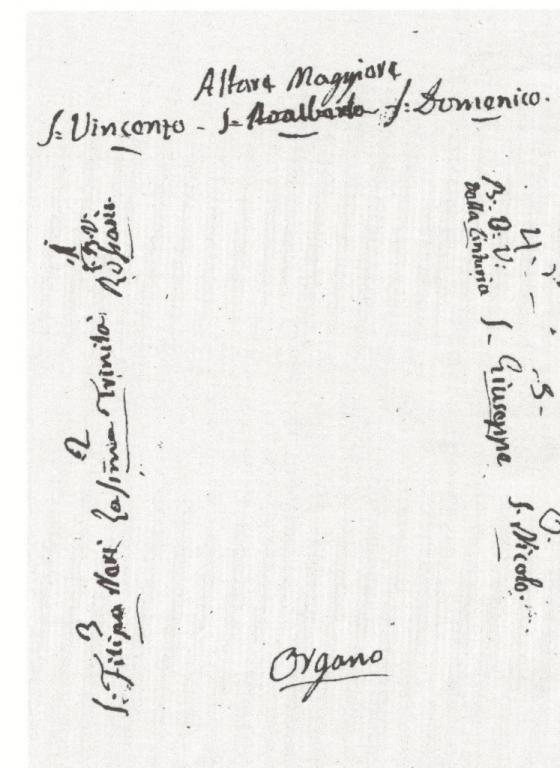 Altare Maggiore
S: Vincenzo - S- Adalberto S: Domenico.
1
B.V.
Rosario.
2
La S̄īma Trinità
3
S. Filipo Neri
4.
B. V.
Dalla Cinturia
5-
S- Giuseppe
S. Nicolo.
Organo